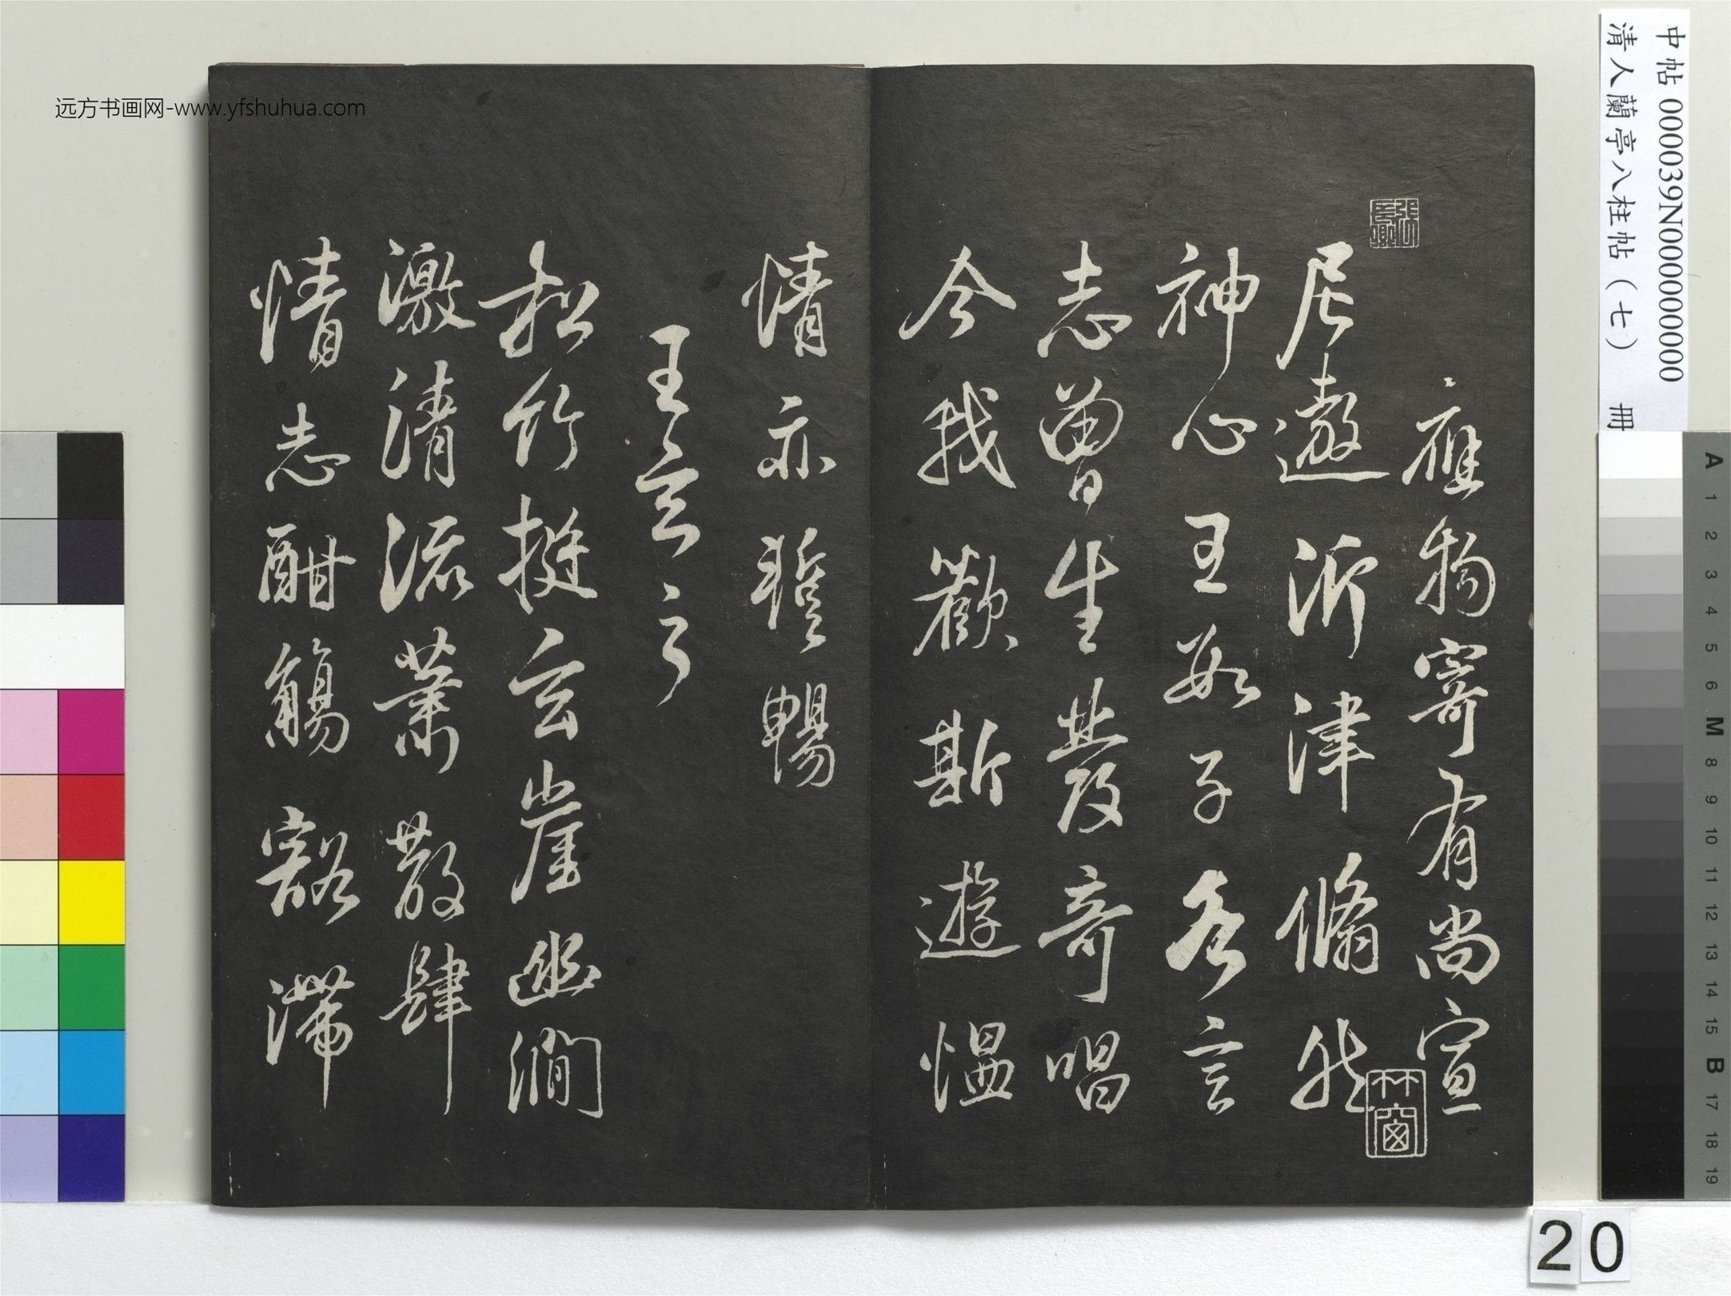 中帖 000039N000000000
清人蘭亭八柱帖（七） 冊
應物寄有尚宣
尼遨沂津翛然
神心王數子各言
志曾生發奇唱
今我歡斯遊慍
情亦蹔暢
王玄之
松竹挺玄崖幽澗
激清流蕭散肆
情志酣觴豁滯
竹窗
远方书画网-www.yfshuhua.com
A
1
2
3
4
5
6
M
8
9
10
11
12
13
14
15
B
17
18
19
20